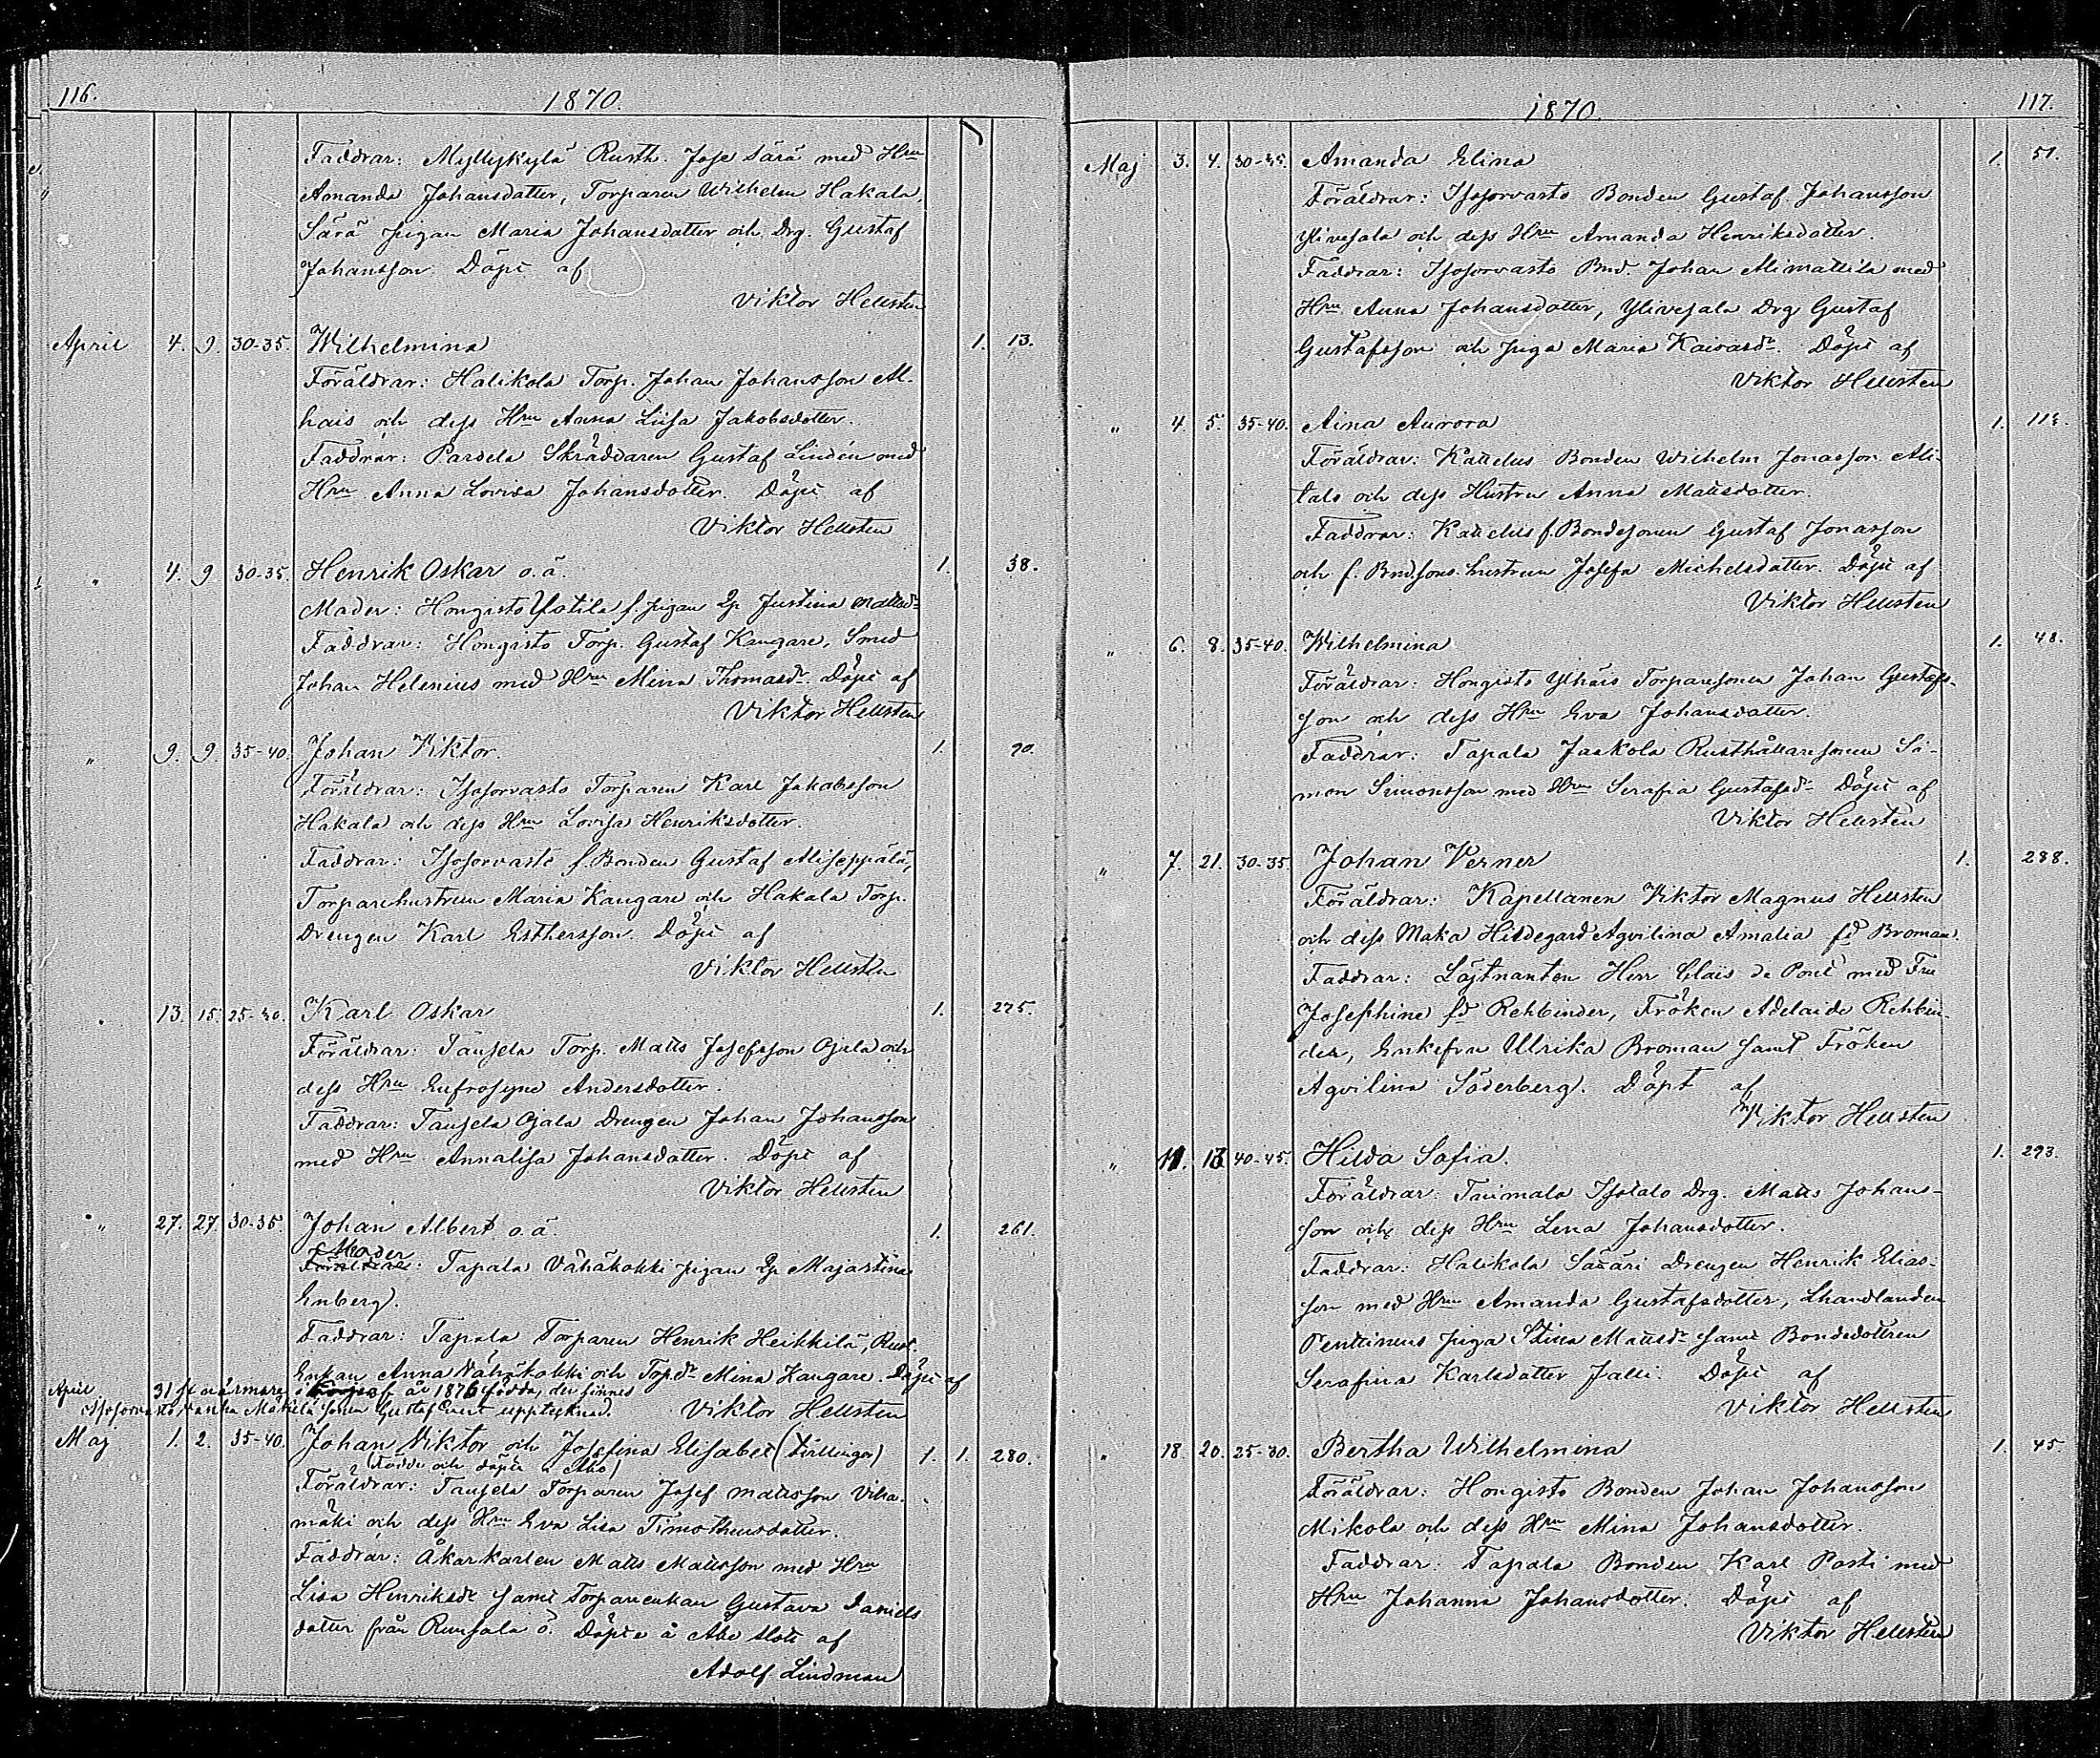 116.
1870.
Faddrar: Myllykylä Rusth. Josef Särä med Hru
Amanda Johansdotter, Torparen Wilhelm Hakala,
Särä pigan Maria Johansdotter och Drg. Gustaf
Johansson. Döpt af
Viktor Hellsten
April 4. 9. 30-35. Wilhelmina 1. 13.
Föräldrar: Halikola Torp. Johan Johansson Al-
hais och dess Hru Anna Liisa Jakobsdotter.
Faddrar: Pardela Skräddaren Gustaf Lindén med
Hru Anna Lovisa Johansdotter. Döpt af
Viktor Hellsten
" 4. 9 30-35. Henrik Oskar o.ä. 1. 38.
Moder: Hongisto Yotila f. pigan Qp Justina Mattsdr
Faddrar: Hongisto Torp. Gustaf Kangare, Smed
Johan Helenius med Hru Mina Thomasdr. Döpt af
Viktor Hellsten
" 9. 9. 35-40. Johan Viktor. 1. 70.
Föräldrar: Isosorvasto Torparen Karl Jakobsson
Hakala och dess Hru Lovisa Henriksdotter.
Faddrar: Isosorvasto f. Bonden Gustaf Aliseppälä,
Torparehustrun Maria Kangare och Hakala Torp.
Drengen Karl Esthersson. Döpt af
Viktor Hellsten
" 13. 15. 25-30. Karl Oskar 1. 275.
Föräldrar: Tausela Torp. Matts Josefsson Ojala och
dess Hru Eufrosyne Andersdotter.
Faddrar: Tausela Ojala Drengen Johan Johansson
med Hru Annalisa Johansdotter. Döpt af
Viktor Hellsten
" 27. 27. 30-35 Johan Albert o.ä. 1. 261.
Moder
Föräldrar: Tapala Vähäkokki pigan Qp Majastina
Enberg.
Faddrar: Tapala Torparen Henrik Heikkilä, Rust.
Enkan Anna Vähäkokki och Topdr Mina Kangare. Döpt af
April 31 år 1876 födda, der finnes
Isosorvasto Mäkilä sonen Gustaf upptecknad. Viktor Hellsten
Maj 1. 2. 35-40. Johan Viktor och Josefina Elisabet (Tvillingar) 1. 1. 280.
(Födde och döpte i Åbo)
Föräldrar: Tausela Torparen Josef Mattsson Viha-
mäki och dess Hru Eva Lisa Timotheusdotter.
Faddrar: Åkarkarlen Matts Mattsson med Hru
Lisa Henriksdr samt Torpareenkan Gustava Daniels
dotter från Runsala ö. Döpte å Åbo slott af
Adolf Lindman
1870.
117.
Maj 3. 4. 30-35. Amanda Elina 1. 51.
Föräldrar: Isosorvasto Bonden Gustaf Johansson
Ylivesala och dess Hru Amanda Henriksdotter.
Faddrar: Isosorvasto Bnd. Johan Alimattila med
Hru Anna Johansdotter, Ylivesala Drg Gustaf
Gustafsson och piga Maria Kaivasdr. Döpt af
Viktor Hellsten
" 4. 5. 35-40. Aina Aurora 1.
Föräldrar: Kattelus Bonden Wilhelm Jonasson Ali-
talo och dess Hustru Anna Mattsdotter.
Faddrar: Kattelus f. Bondesonen Gustaf Jonasson
och f. Bndsons. hustrun Josefa Michelsdotter. Döpt af
Viktor Hellsten
" 6. 8. 35-40. Wilhelmina 1. 48.
Föräldrar: Hongisto Ylhäis Torparesonen Johan Gustafs-
son och dess Hru Eva Johansdotter.
Faddrar: Tapala Jaakola Rusthållaresonen Si-
mon Simonsson med Hru Serafia Gustafsdr. Döpt af
Viktor Hellsten
" 7. 21. 30-35 Johan Verner 1. 288.
Föräldrar: Kapellanen Viktor Magnus Hellsten
och dess Maka Hildegard Aqvilina Amalia fd Broman.
Faddrar: Löjtnanten Herr Claës de Pont med Fru
Josephine fd Rehbinder, Fröken Adelaide Rehbin-
der, Enkefru Ulrika Broman samt Fröken
Aqvilina Söderberg. Döpt af
Viktor Hellsten
" 11. 13 40-45. Hilda Sofia. 1. 293.
Föräldrar: Tuimala Isotalo Drg. Matts Johans-
son och dess Hru Lena Johansdotter.
Faddrar: Halikola Säääri Drengen Henrik Elias-
son med Hru Amanda Gustafsdotter, Lhandlanden
Penttinens piga Stina Mattsdr samt Bondedottren
Serafina Karlsdotter Jalli. Döpt af
Viktor Hellsten
" 18 20. 25-30. Bertha Wilhelmina 1. 45.
Föräldrar: Hongisto Bonden Johan Johansson
Mikola och dess Hru Mina Johansdotter.
Faddrar: Tapala Bonden Karl Posti med
Hru Johanna Johansdotter. Döpt af
Viktor Hellsten